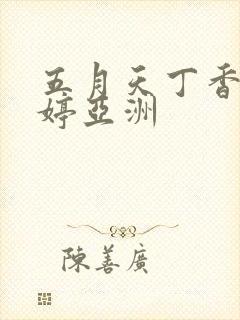 五月天丁香
婷亞洲
陳善廣